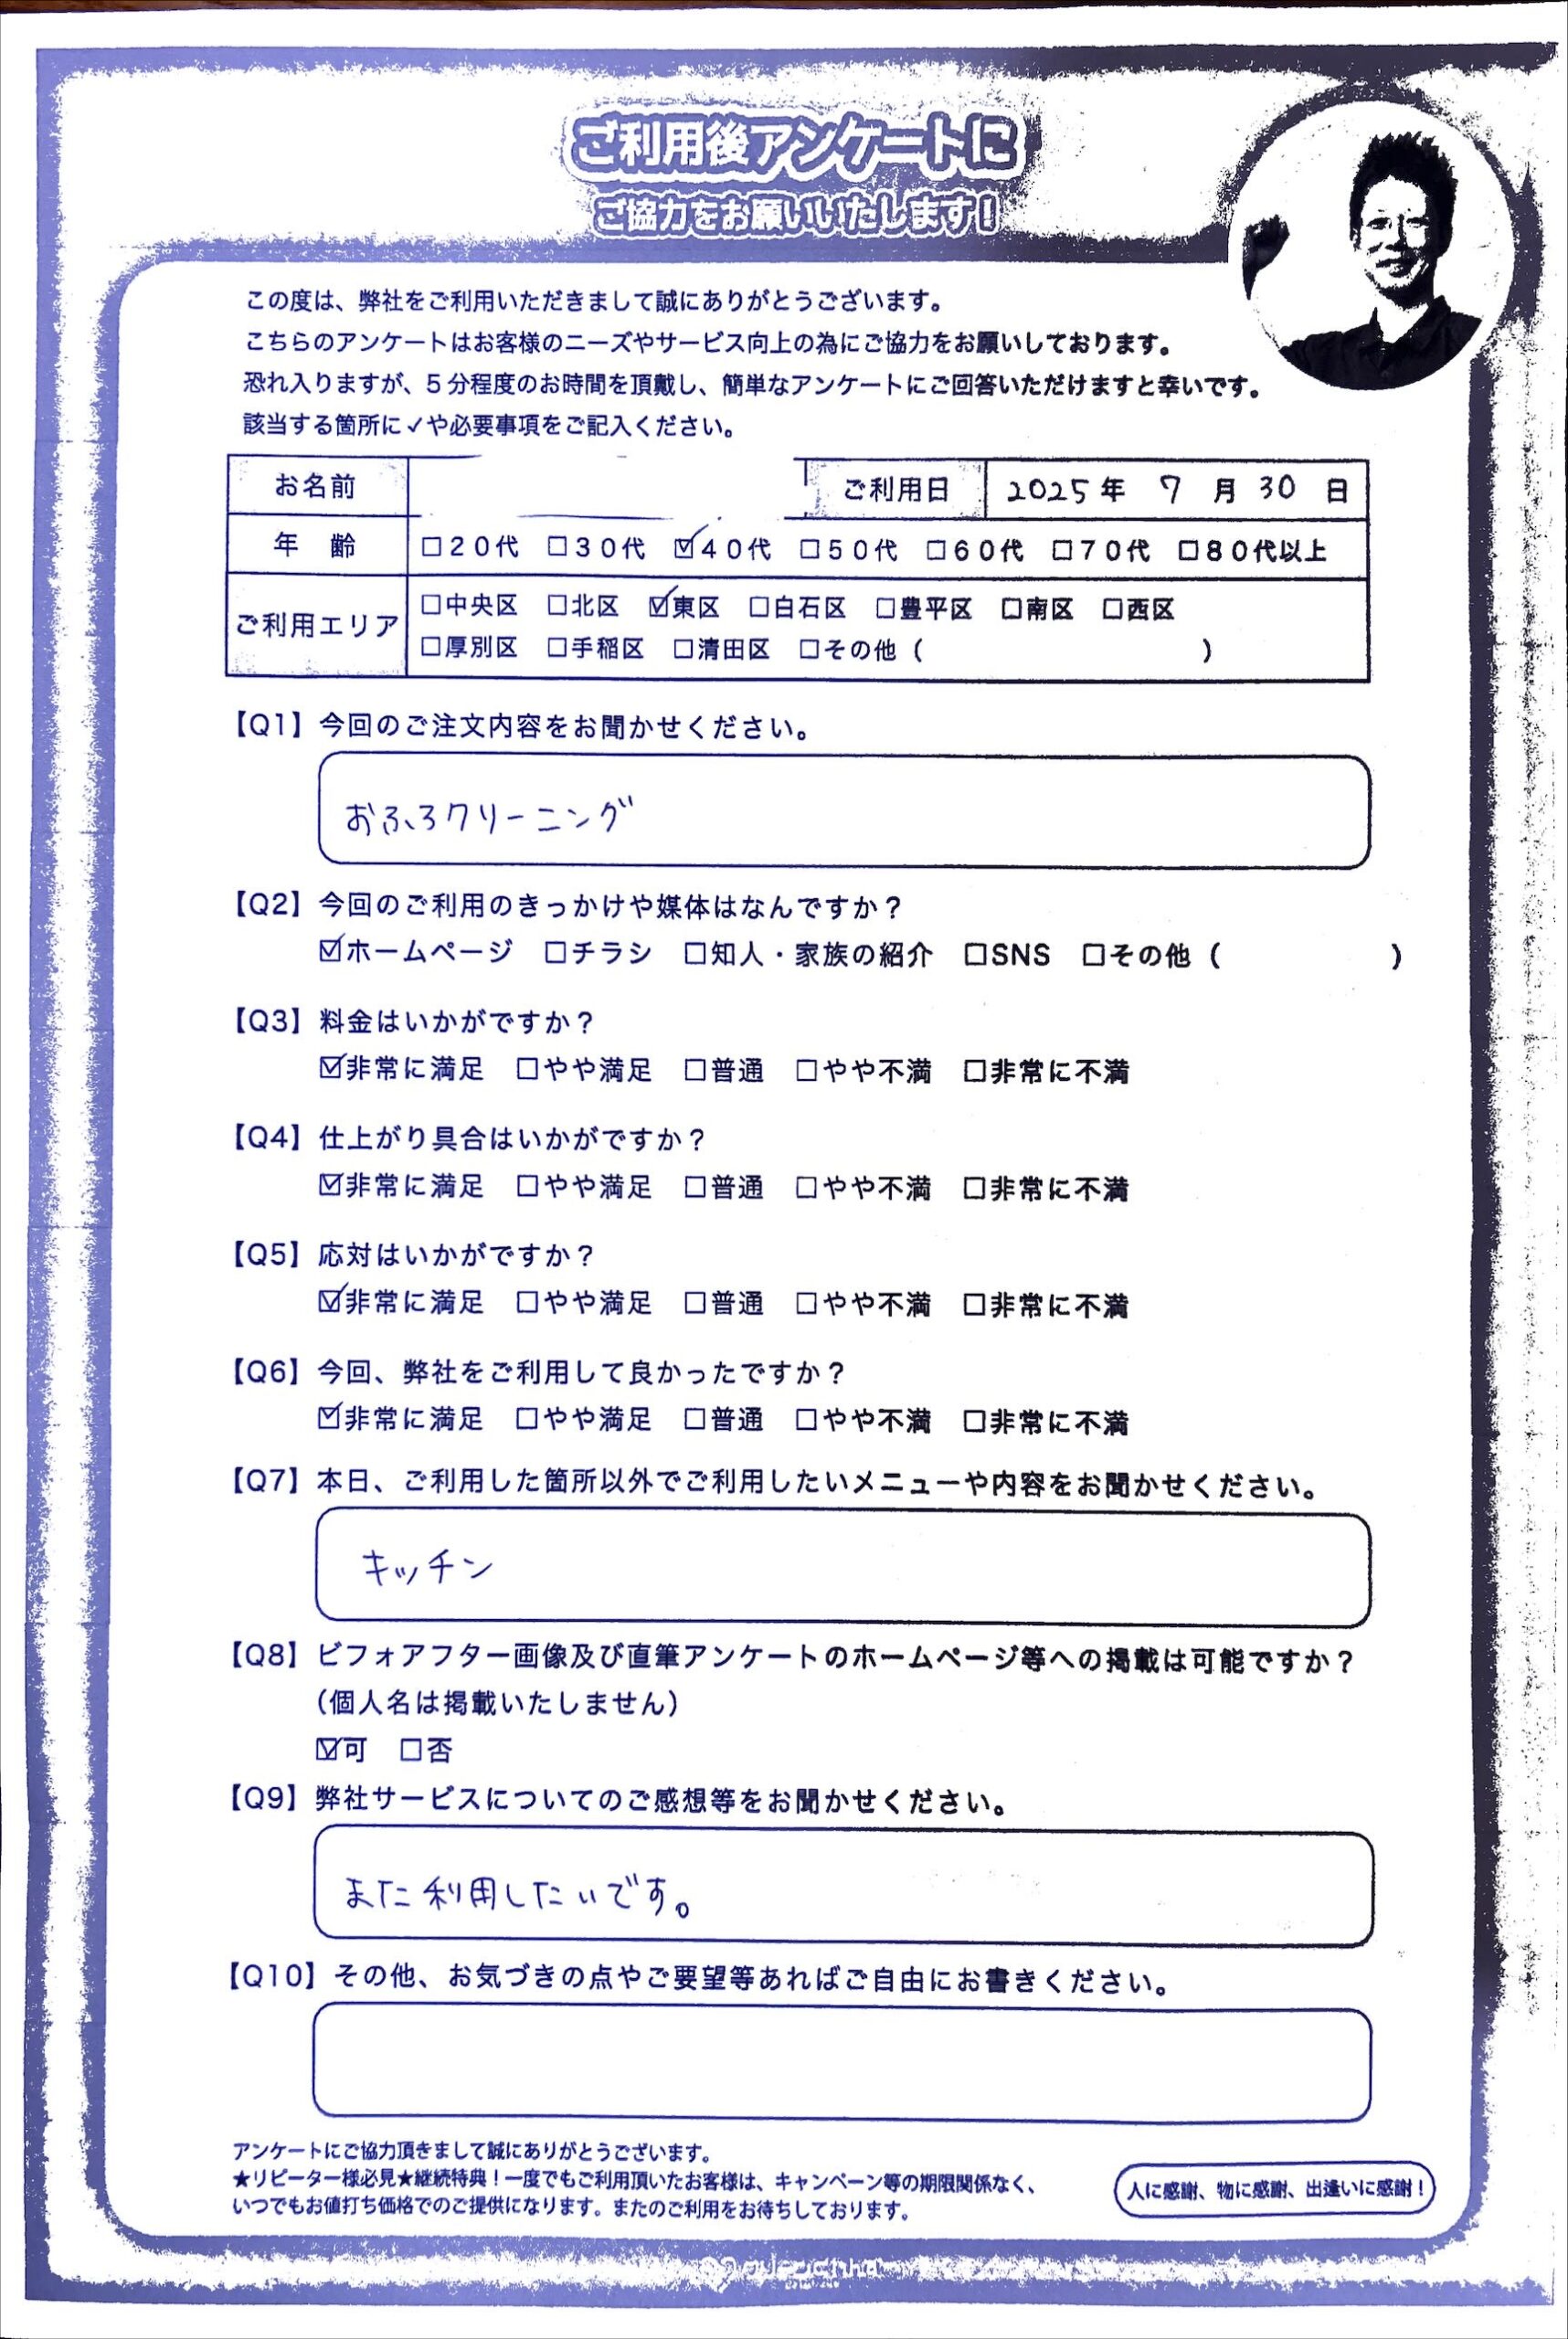 ご利用後アンケートに
ご協力をお願いいたします！
この度は、弊社をご利用いただきまして誠にありがとうございます。
こちらのアンケートはお客様のニーズやサービス向上の為にご協力をお願いしております。
恐れ入りますが、5分程度のお時間を頂戴し、簡単なアンケートにご回答いただけますと幸いです。
該当する箇所に✓や必要事項をご記入ください。
お名前 ご利用日 2025年 7月 30日
年 齢 □20代 □30代 ☑40代 □50代 □60代 □70代 □80代以上
ご利用エリア □中央区 □北区 ☑東区 □白石区 □豊平区 □南区 □西区
□厚別区 □手稲区 □清田区 □その他（ ）
【Q1】今回のご注文内容をお聞かせください。
おふろクリーニング
【Q2】今回のご利用のきっかけや媒体はなんですか？
☑ホームページ □チラシ □知人・家族の紹介 □SNS □その他（ ）
【Q3】料金はいかがですか？
☑非常に満足 □やや満足 □普通 □やや不満 □非常に不満
【Q4】仕上がり具合はいかがですか？
☑非常に満足 □やや満足 □普通 □やや不満 □非常に不満
【Q5】応対はいかがですか？
☑非常に満足 □やや満足 □普通 □やや不満 □非常に不満
【Q6】今回、弊社をご利用して良かったですか？
☑非常に満足 □やや満足 □普通 □やや不満 □非常に不満
【Q7】本日、ご利用した箇所以外でご利用したいメニューや内容をお聞かせください。
キッチン
【Q8】ビフォアフター画像及び直筆アンケートのホームページ等への掲載は可能ですか？
（個人名は掲載いたしません）
☑可 □否
【Q9】弊社サービスについてのご感想等をお聞かせください。
また利用したいです。
【Q10】その他、お気づきの点やご要望等あればご自由にお書きください。
アンケートにご協力頂きまして誠にありがとうございます。
★リピーター様必見★継続特典！一度でもご利用頂いたお客様は、キャンペーン等の期限関係なく、
いつでもお値打ち価格でのご提供になります。またのご利用をお待ちしております。
人に感謝、物に感謝、出逢いに感謝！